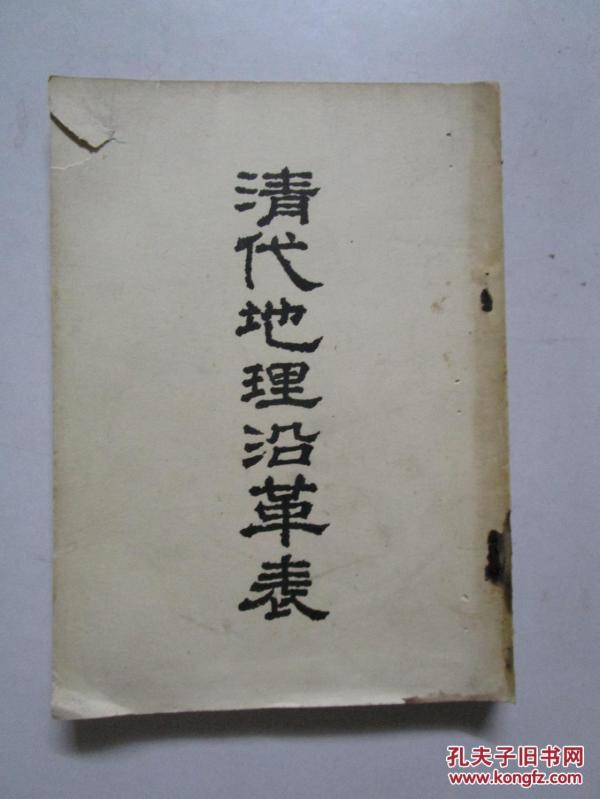 清代地理沿革表
孔夫子旧书网
www.kongfz.com